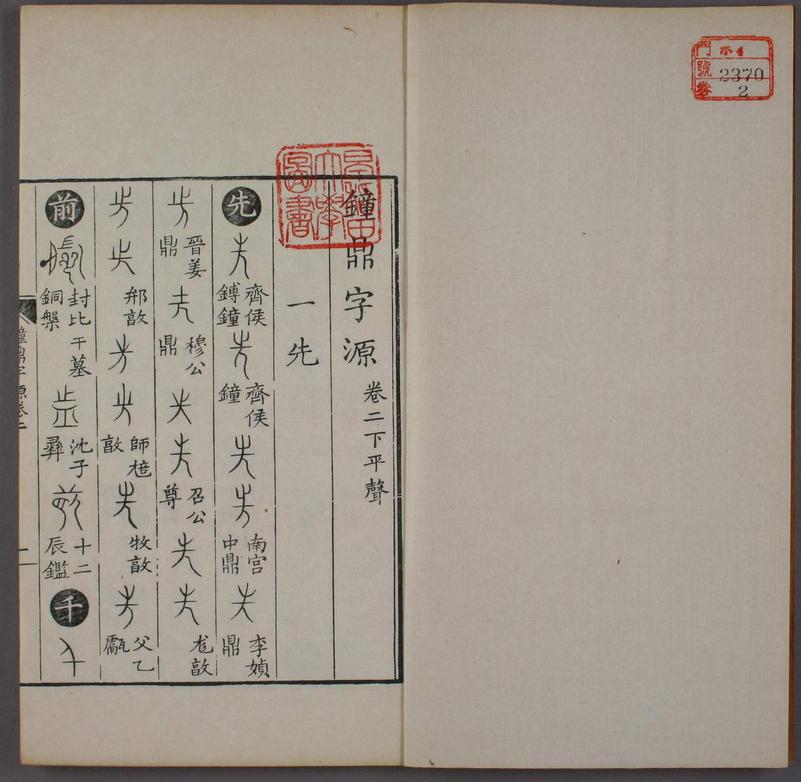 門 ホ4
號 2370
卷 2
鐘鼎字源 卷二下平聲
一先
先 齊侯鎛鐘 齊侯鐘 南宮中鼎 李媜鼎
晉姜鼎 穆公鼎 召公尊 尨敦
邢敦 師𣐺敦 牧敦 父乙甗
前 封比干墓銅槃 沈子彝 十二辰鑑 千
鐘鼎字源卷二
一